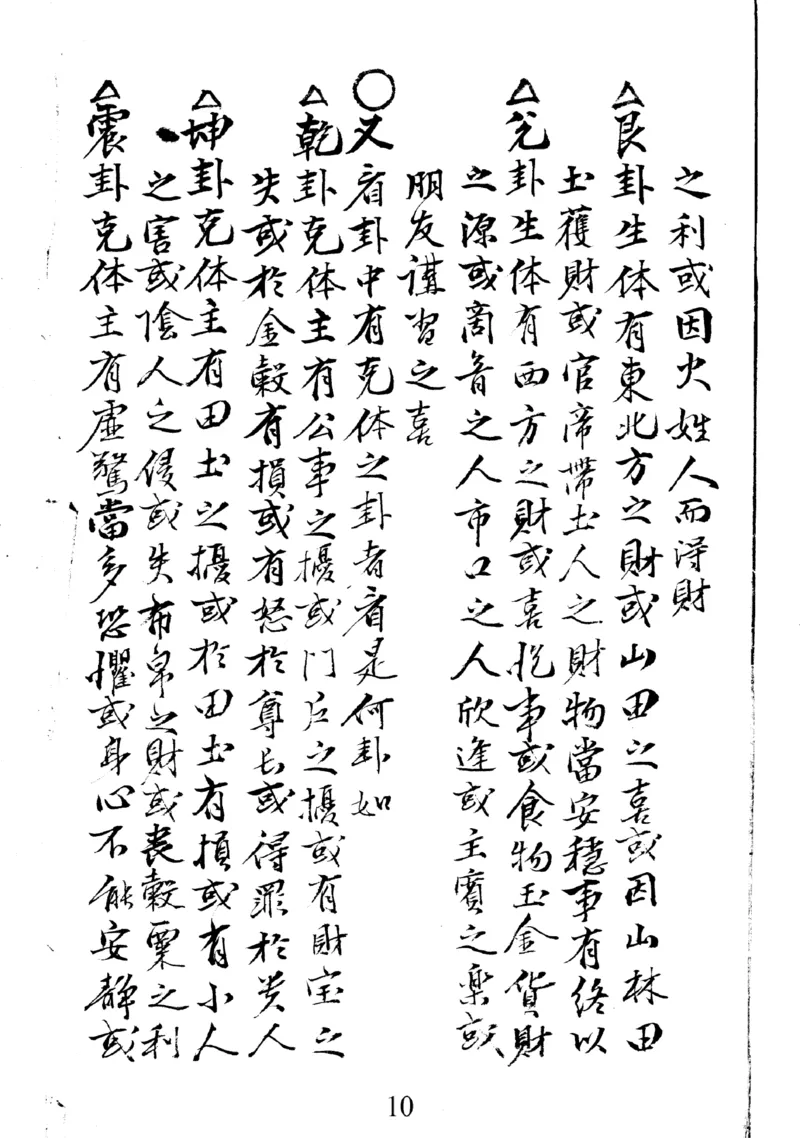 之利或因火姓人而得財
△艮卦生体有東北方之財或山田之喜或因山林田
土獲財或官帝帶土人之財物當安穩事有終以
△兌卦生体有西方之財或喜悦事或食物玉金貨財
之源或商音之人市口之人欣逢或主賓之楽或
朋友講習之喜
○又看卦中有克体之卦者看是何卦如
△乾卦克体主有公事之擾或門户之擾或有財宝之
失或於金穀有損或有怒於尊长或得罪於贵人
△坤卦克体主有田土之擾或於田土有損或有小人
之害或陰人之侵或失布帛之財或丧穀粟之利
△震卦克体主有虚驚當多恐懼或身心不能安静或
10